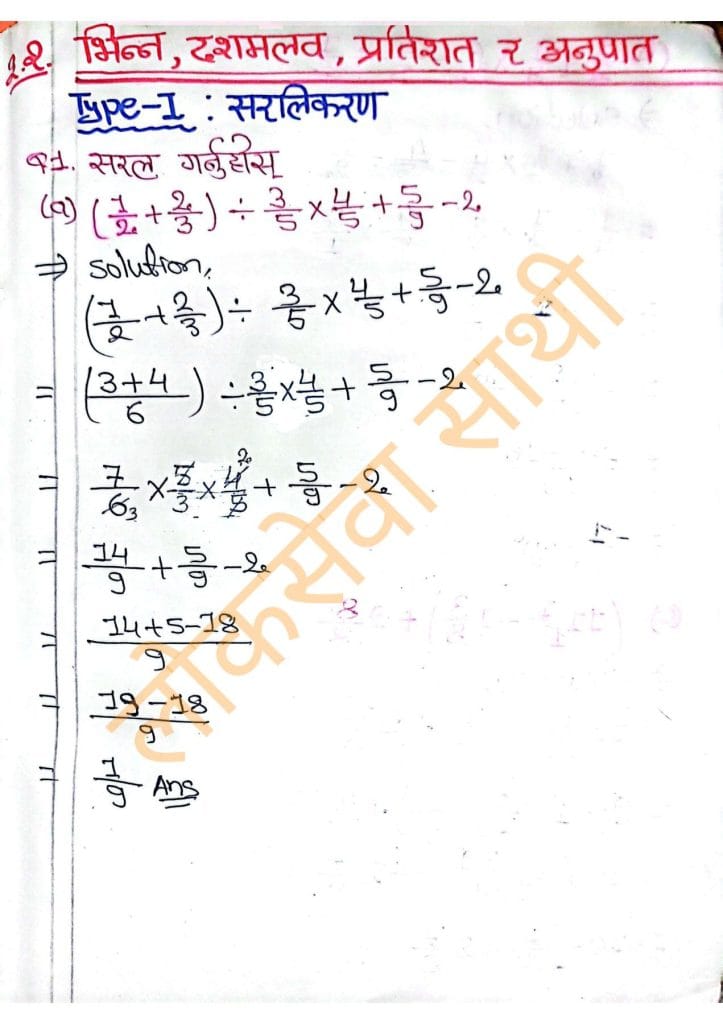 १.२. भिन्न, दशमलव, प्रतिशत र अनुपात
Type-I : सरलिकरण
Q1. सरल गर्नुहोस्
(a) (1/2 + 2/3) ÷ 3/5 × 4/5 + 5/9 - 2
⇒ Solution,
(1/2 + 2/3) ÷ 3/5 × 4/5 + 5/9 - 2
= (3+4/6) ÷ 3/5 × 4/5 + 5/9 - 2
= 7/6 3 × 5/3 × 4 2/5 + 5/9 - 2
= 14/9 + 5/9 - 2
= 14+5-18/9
= 19-18/9
= 1/9 Ans
लोकसेवा साथी